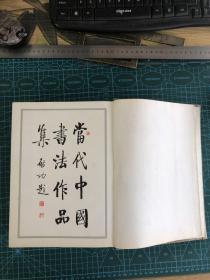 當代中國
書法作品
集 啟功題